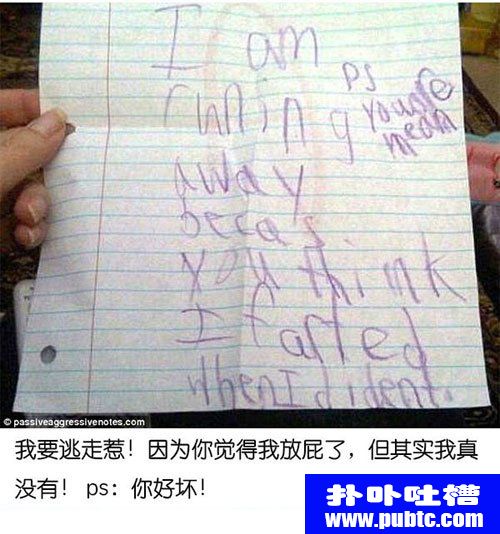 I am
runing
ps
you're
mean
away
becas
you think
I farted
when I dident.
© passiveaggressivenotes.com
我要逃走惹！因为你觉得我放屁了，但其实我真
没有！ps：你好坏！
扑卟吐槽
www.pubtc.com